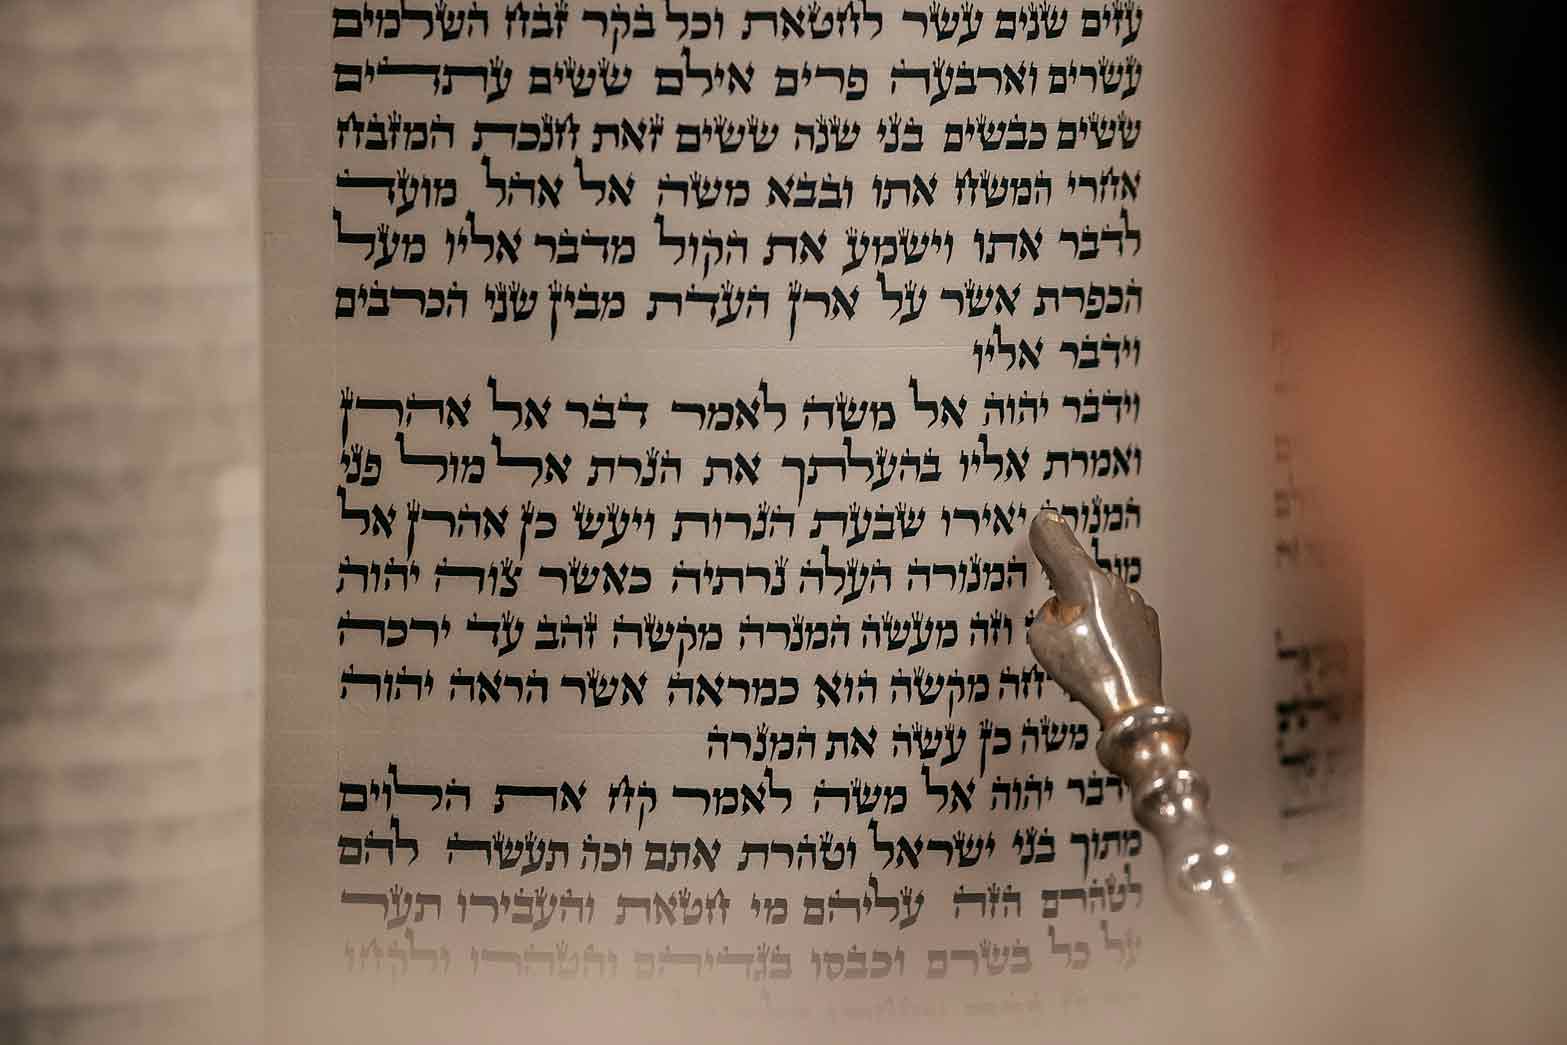 עזים שנים עשר לחטאת וכל בקר זבח השלמים
עשרים וארבעה פרים אילם ששים עתדים
ששים כבשים בני שנה ששים זאת חנכת המזבח
אחרי המשח אתו ובבא משה אל אהל מועד
לדבר אתו וישמע את הקול מדבר אליו מעל
הכפרת אשר על ארן העדת מבין שני הכרבים
וידבר אליו
וידבר יהוה אל משה לאמר דבר אל אהרן
ואמרת אליו בהעלתך את הנרת אל מול פני
המנורה יאירו שבעת הנרות ויעש כן אהרן אל
מול המנורה העלה נרתיה כאשר צוה יהוה
וזה מעשה המנרה מקשה זהב עד ירכה
מקשה הוא כמראה אשר הראה יהוה
משה כן עשה את המנרה
וידבר יהוה אל משה לאמר קח את הלוים
מתוך בני ישראל וטהרת אתם וכה תעשה להם
לטהרם הזה עליהם מי חטאת והעבירו תער
על כל בשרם וכבסו בגדיהם והטהרו ולקחו